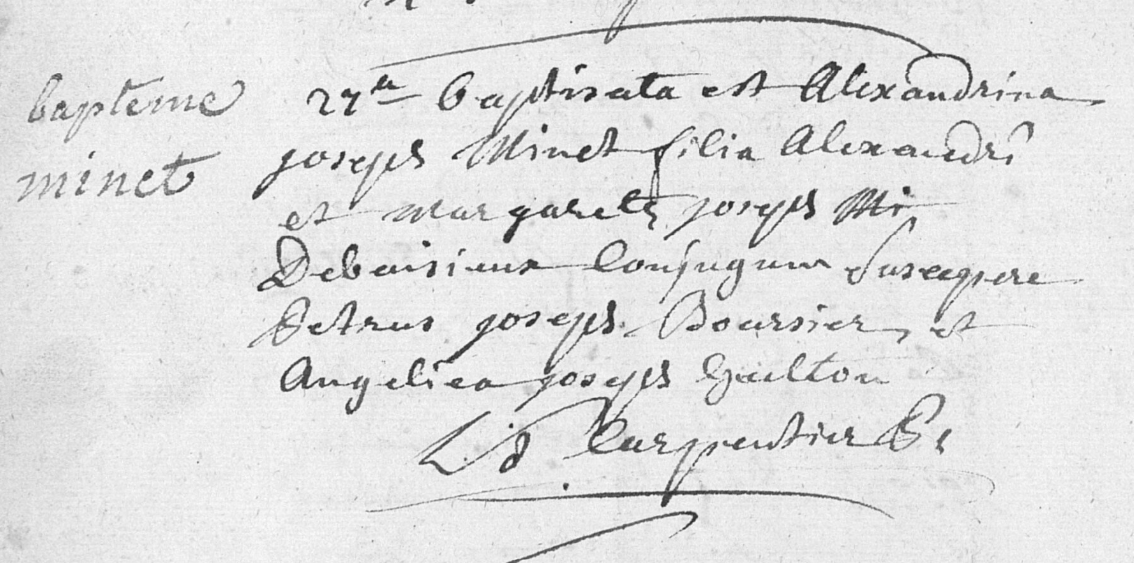 bapteme
minet
27ª baptisata est Alexandrina
joseph Minet filia Alexandri
et margaretę joseph Mi
Debaisieux Conjugum Suscepere
Petrus joseph Boursier, et
Angelica joseph
Carpentier